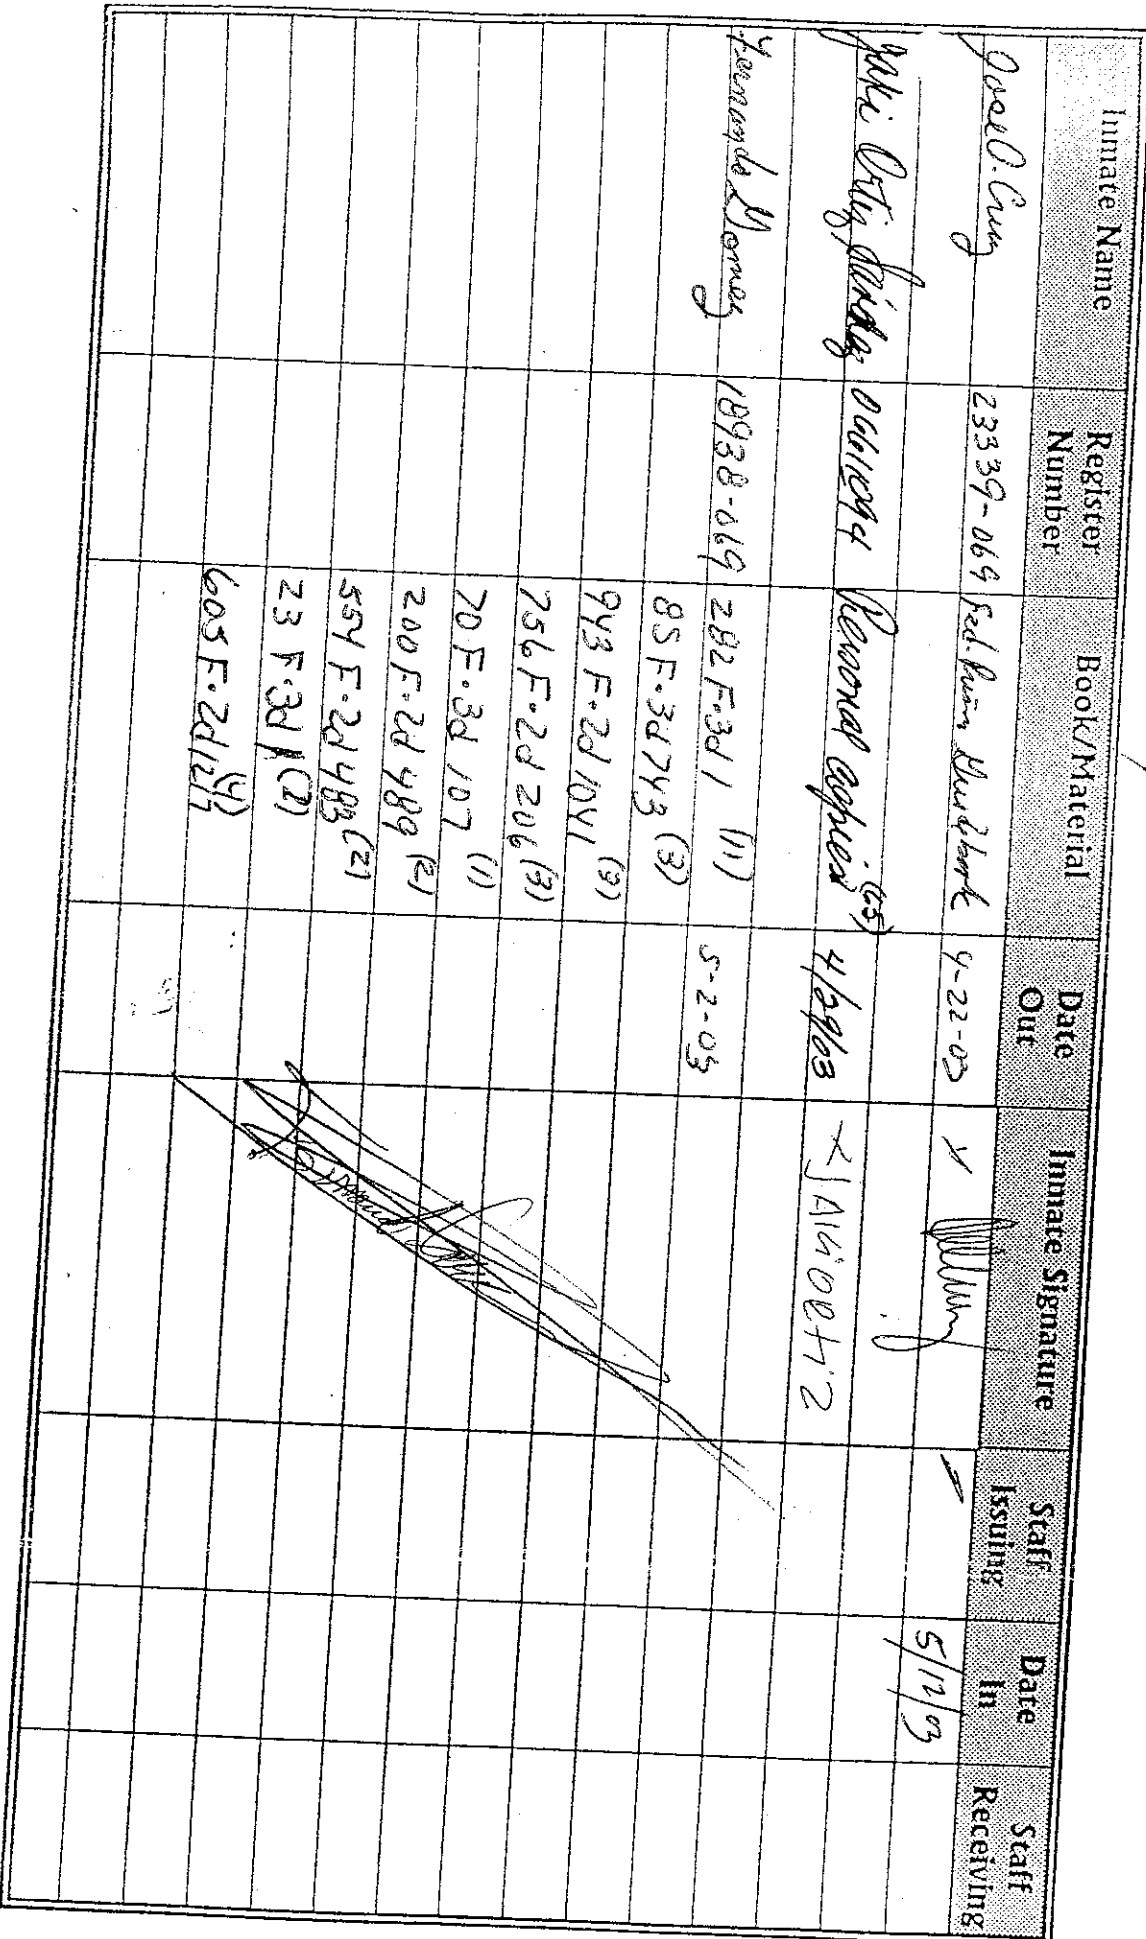 Inmate Name Register Number Book/Material Date Out Inmate Signature Staff Issuing Date In Staff Receiving
Jose O. Cruz 23339-069 Fed. Prison Guidebook 4-22-03 x 5/12/03
Jaki Ortiz 06610094 Personal copies (65) 4/29/03 x JAKI ORTIZ
Fernando Gomez 18938-069 282 F.3d 1 (11) 5-2-03
85 F.3d 743 (3)
943 F.2d 1041 (3)
756 F.2d 206 (3)
70 F.3d 107 (1)
200 F.2d 489 (2)
554 F.2d 483 (2)
23 F.3d 1 (2)
605 F.2d 1217 (4)